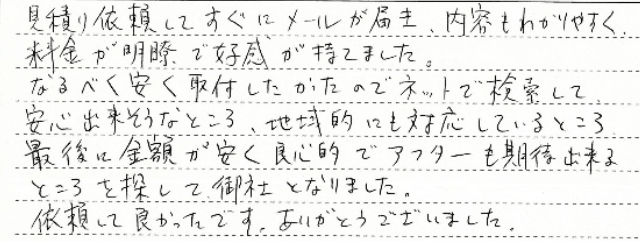 見積り依頼してすぐにメールが届き、内容もわかりやすく、
料金が明瞭で好感が持てました。
なるべく安く取付したかったのでネットで検索して
安心出来そうなところ、地域的にも対応しているところ
最後に金額が安く良心的でアフターも期待出来る
ところを探して御社となりました。
依頼して良かったです。ありがとうございました。